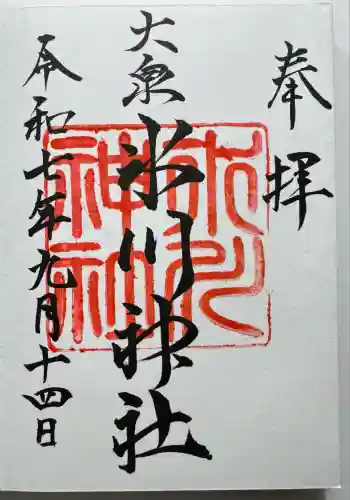 奉拝
大泉
氷川神社
氷川神社
令和七年九月十四日